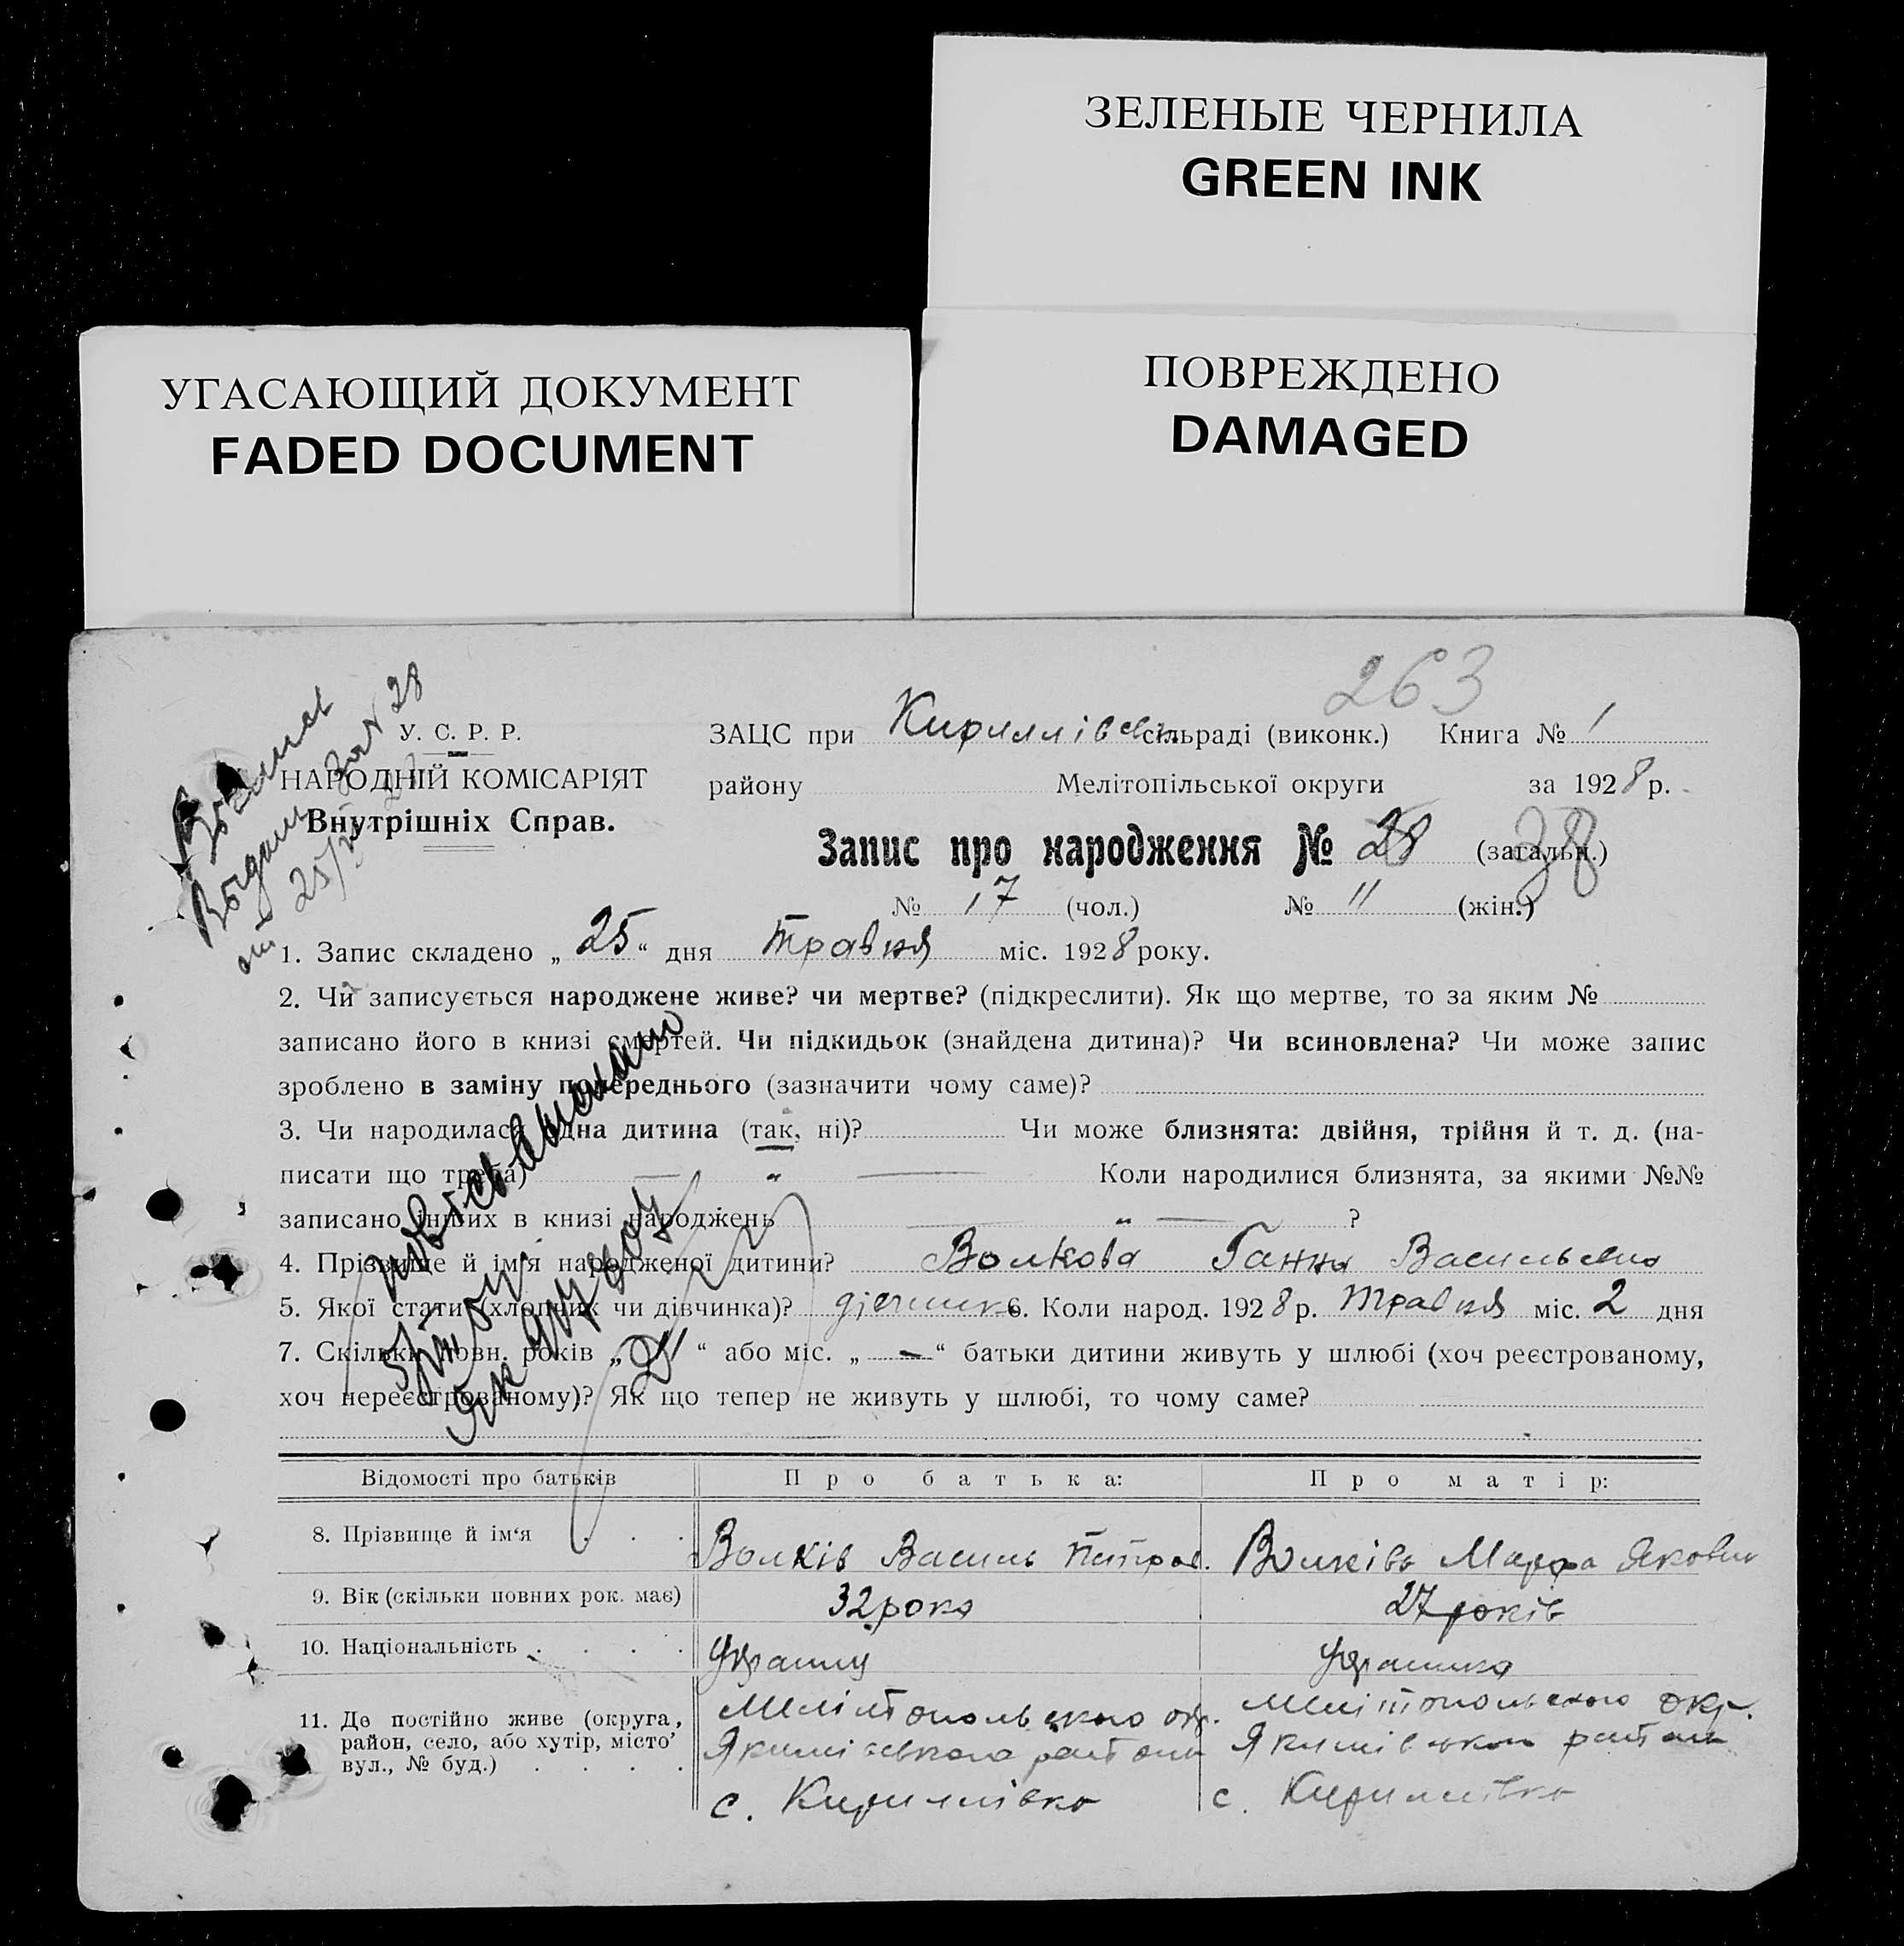 ЗЕЛЕНЫЕ ЧЕРНИЛА
GREEN INK
УГАСАЮЩИЙ ДОКУМЕНТ
FADED DOCUMENT
ПОВРЕЖДЕНО
DAMAGED
263
У. С. Р. Р.
НАРОДНІЙ КОМІСАРІЯТ
Внутрішніх Справ.
ЗАЦС при Кириллівськ сільраді (виконк.) Книга № 1
району Мелітопільської округи за 1928 р.
Запис про народження № 28 (загальн.) 28
№ 17 (чол.) № 11 (жін.)
25
1. Запис складено „ 25 “ дня травня міс. 1928 року.
2. Чи записується народжене живе? чи мертве? (підкреслити). Як що мертве, то за яким №
записано його в книзі смертей. Чи підкидьок (знайдена дитина)? Чи всиновлена? Чи може запис
зроблено в заміну попереднього (зазначити чому саме)?
3. Чи народилася одна дитина (так, ні)? Чи може близнята: двійня, трійня й т. д. (на-
писати що треба) — „ — Коли народилися близнята, за якими №№
записано інших в книзі народжень — „ — ?
4. Прізвище й ім'я народженої дитини? Волкова Ганна Васильевна
5. Якої стати (хлопчик чи дівчинка)? дівчинка 6. Коли народ. 1928 р. травня міс. 2 дня
7. Скільки повн. років „ “ або міс. „ — “ батьки дитини живуть у шлюбі (хоч реєстрованому,
хоч нереєстрованому)? Як що тепер не живуть у шлюбі, то чому саме?
Відомості про батьків Про батька: Про матір:
8. Прізвище й ім‘я Волків Василь Петров. Волківа Марфа Яковин
9. Вік (скільки повних рок. має) 32 рока 27 років
10. Національність Українц Українка
11. Де постійно живе (округа, район, село, або хутір, місто’ вул., № буд.)
Мелітопольского окр. Мелітопольского окр.
Якимівського району Якимівського району
с. Кириллівка с. Кириллівка